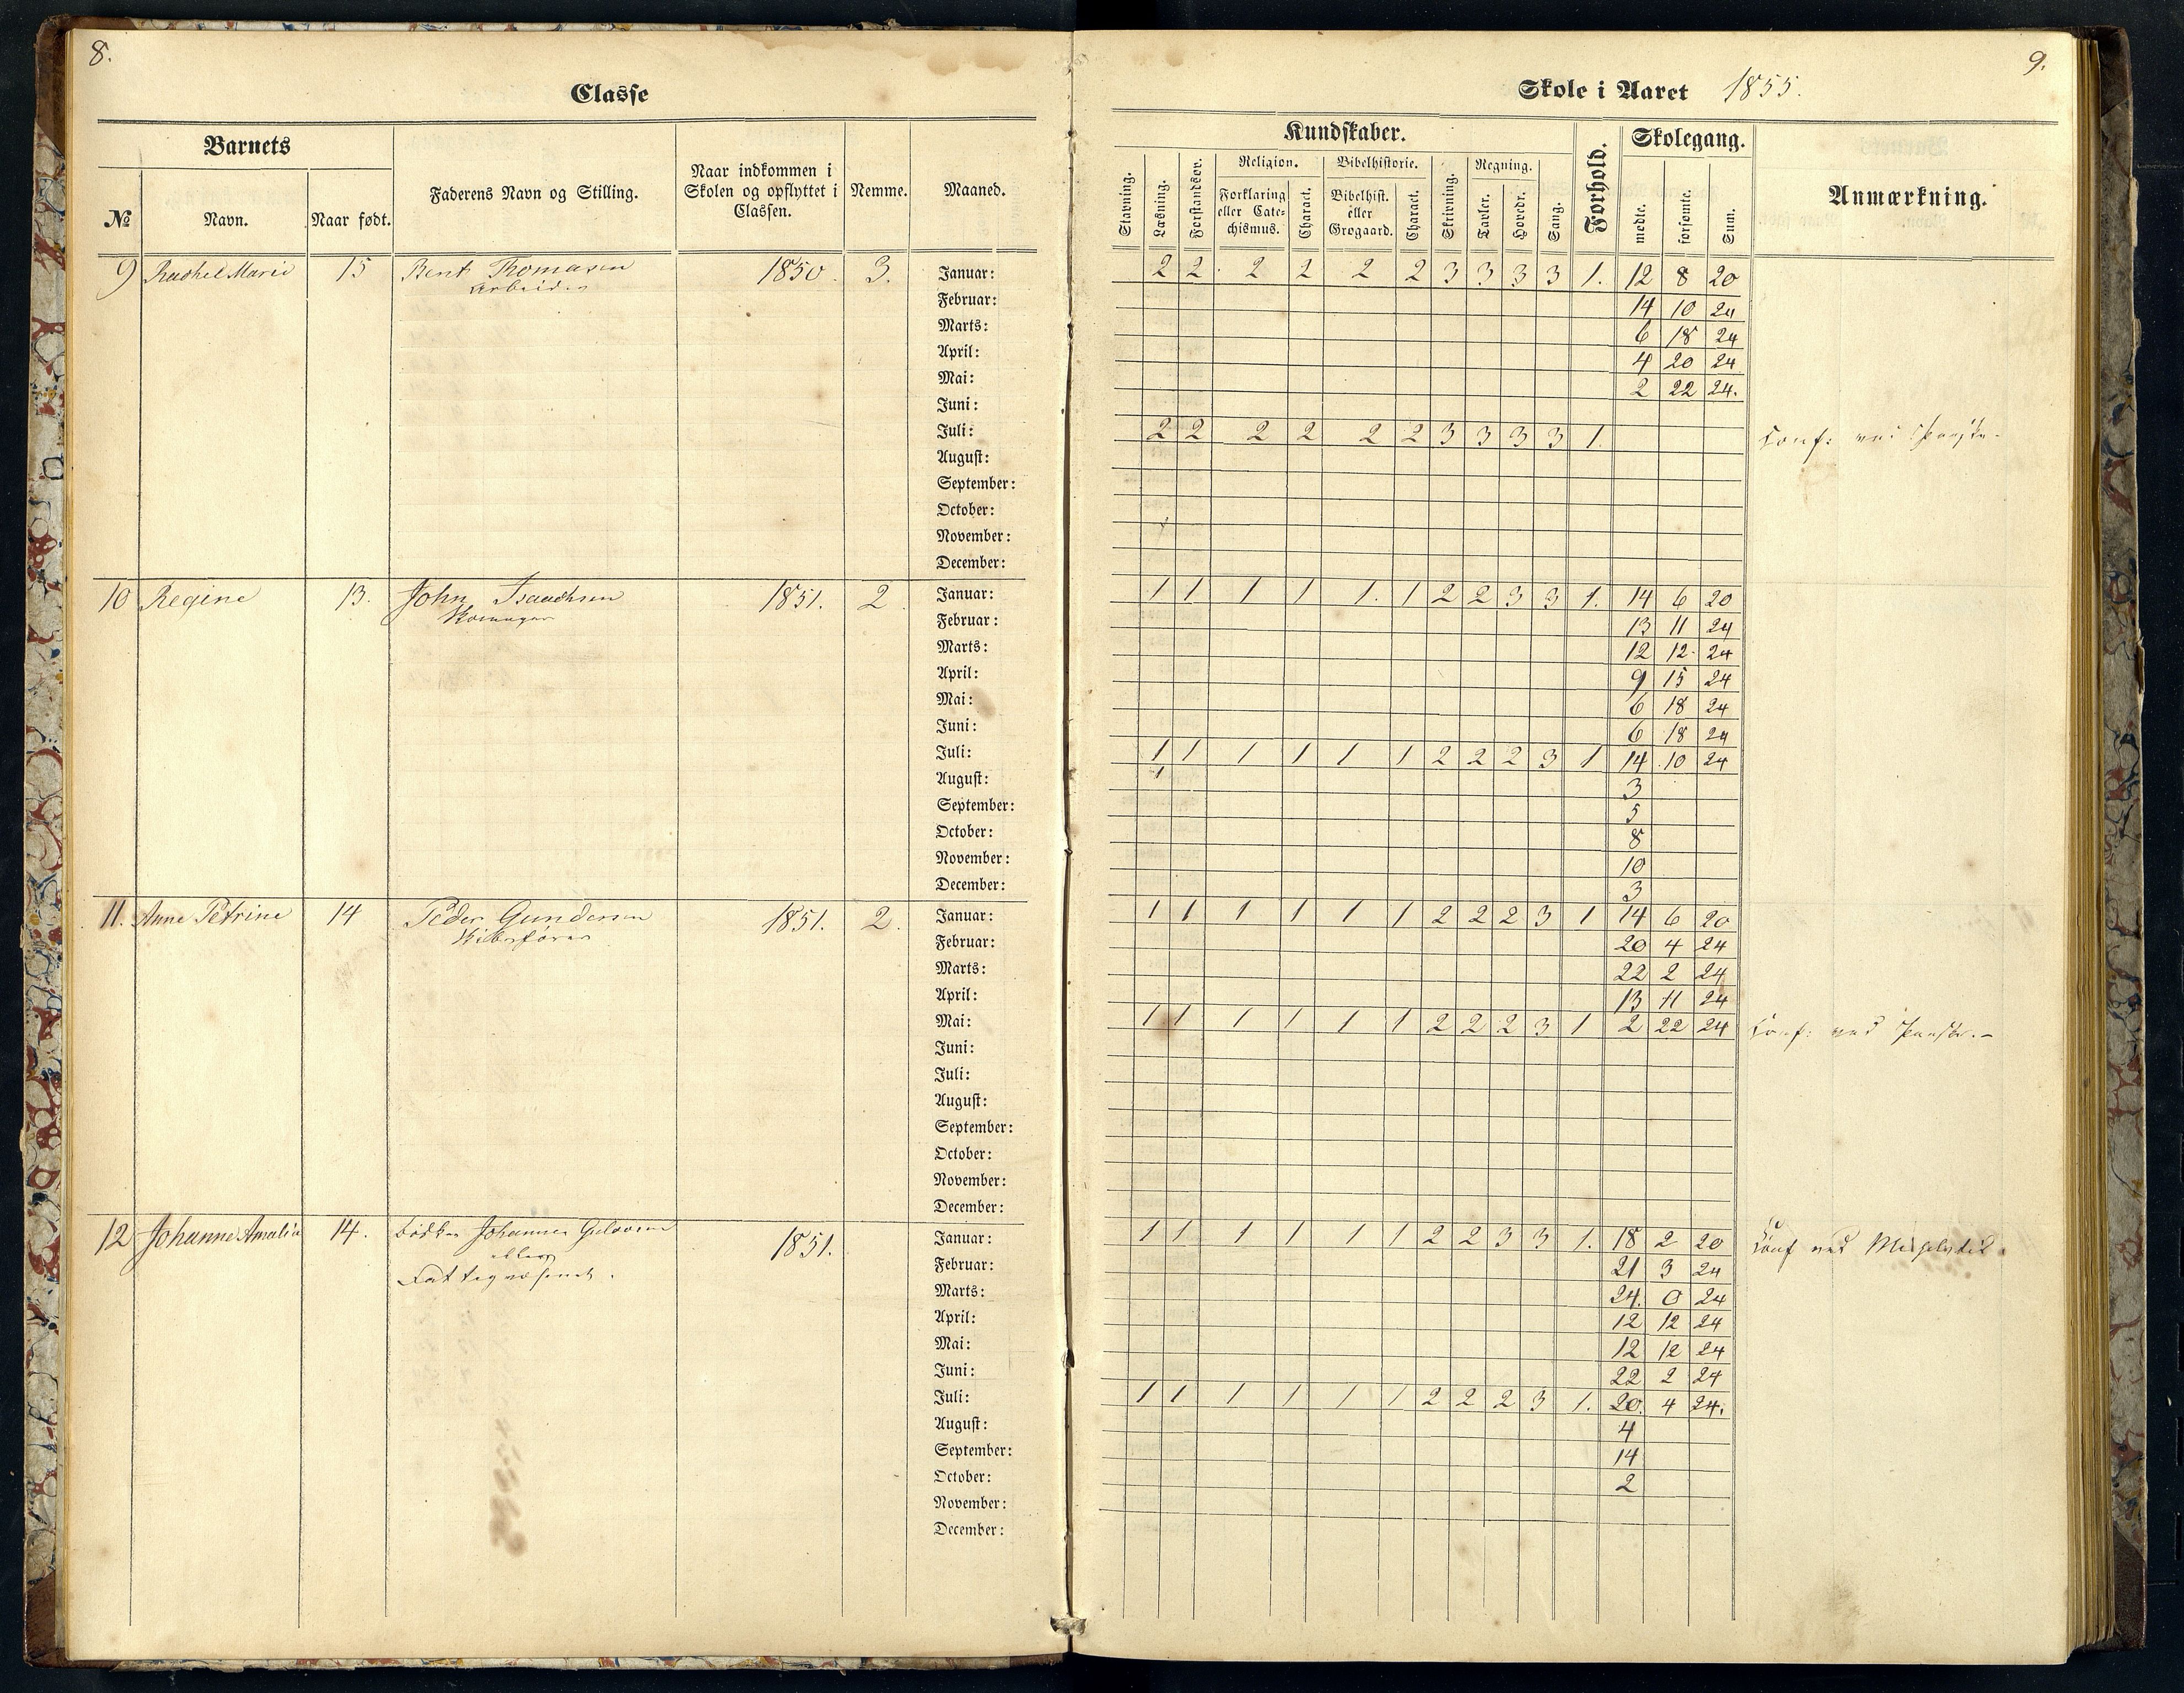 8.
Classe
Barnets
№ Navn. Naar født. Faderens Navn og Stilling. Naar indkommen i Skolen og opflyttet i Classen. Nemme. Maaned.
9 Rachel Marie 15 Bent Thomasen 1850. 3. Januar:
Arbeider
Februar:
Marts:
April:
Mai:
Juni:
Juli:
August:
September:
October:
November:
December:
10 Regine 13. John Isaachsen 1851. 2 Januar:
Februar:
Marts:
April:
Mai:
Juni:
Juli:
August:
September:
October:
November:
December:
11. Anne Petrine 14 Peder Gundersen 1851. 2. Januar:
Skibsfører Februar:
Marts:
April:
Mai:
Juni:
Juli:
August:
September:
October:
November:
December:
12 Johanne Amalia 14. Johannes 1851. Januar:
Fattigvæsenet. Februar:
Marts:
April:
Mai:
Juni:
Juli:
August:
September:
October:
November:
December:
9.
Skole i Aaret 1855.
Kundskaber. Forhold. Skolegang. Anmærkning.
Stavning. Læsning. Forstandsøv. Religion. Bibelhistorie. Skrivning. Regning. Sang. mødte. forsømte. Sum.
Forklaring eller Catechismus. Charact. Bibelhist. eller Grøgaard. Charact. Tavler. Hovedr.
2 2 2 2 2 2 3 3 3 3 1. 12 8 20
14 10 24
6 18 24
4 20 24
2 22 24.
2 2 2 2 2 2 3 3 3 3 1. Conf: ved Paaske.
1 1 1 1 1. 1 2 2 3 3 1. 14 6 20
13 11 24
12 12 24
9 15 24
6 18 24
6 18 24
1 1 1 1 1 1 2 2 2 3 1 14 10 24
3
5
8
10
3
1 1 1 1 1 1 2 2 2 3 1 14 6 20
20 4 24
22 2 24
13 11 24
1 1 1 1 1 1 2 2 2 3 1 2 22 24 Conf: ved Paaske.-
1 1 1 1 1 1 2 2 3 3 1. 18 2 20 Conf ved
21 3 24
24. 0 24
12 12 24
12 12 24
22 2 24
1 1 1 1 1 1 2 2 2 3 1. 20. 4 24.
4
14
2